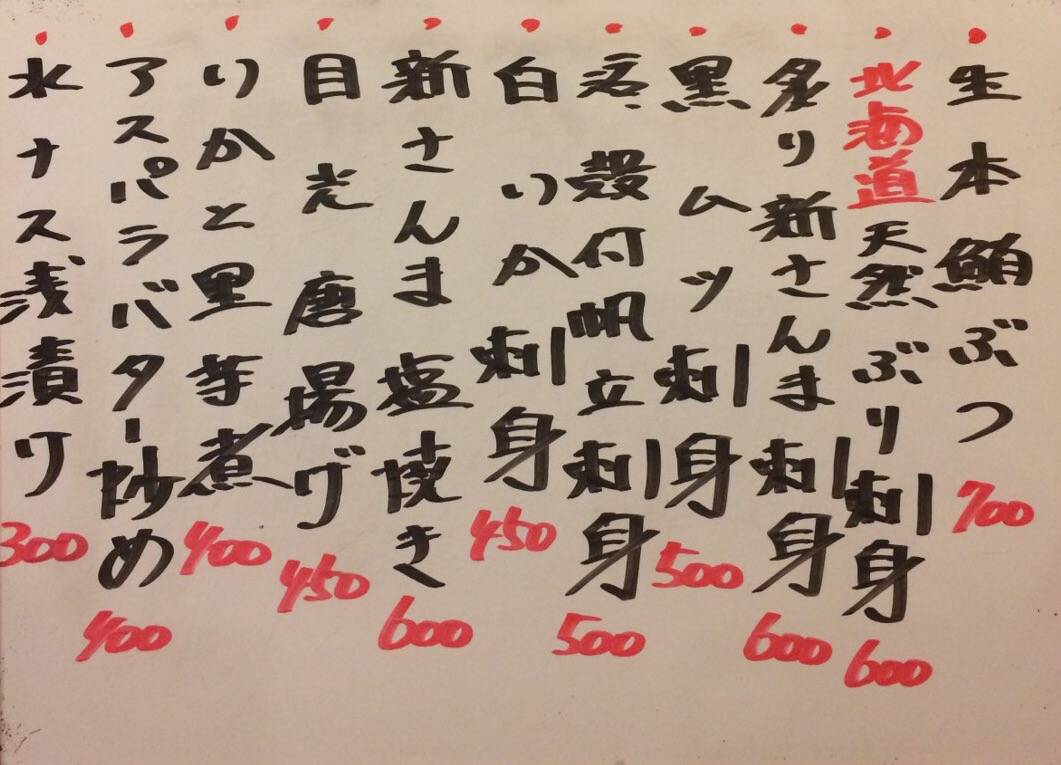 生本鮪ぶつ 700
北海道天然ぶり刺身 600
炙り新さんま刺身 600
黒ムツ刺身 500
活殻付帆立刺身 500
白いか刺身 450
新さんま塩焼き 600
目光唐揚げ 450
いかと里芋煮 400
アスパラバター炒め 400
水ナス浅漬け 300